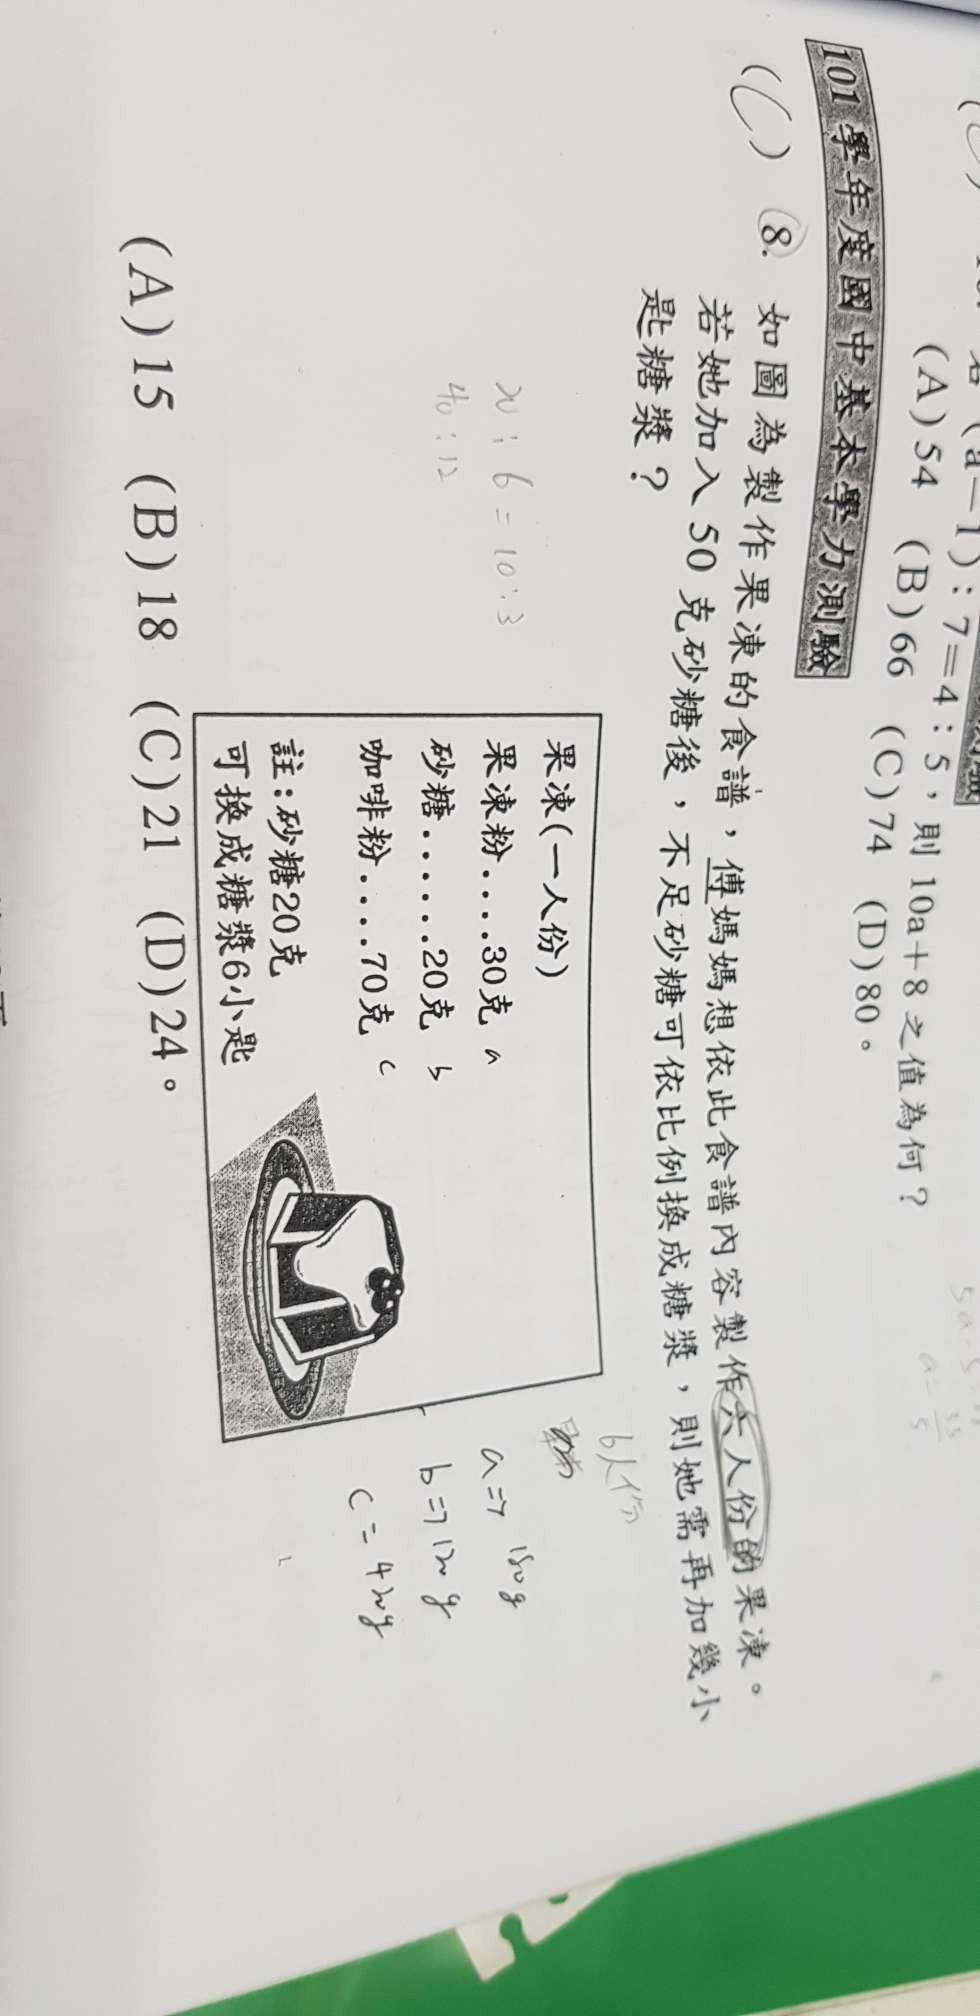 若(a－1)：7＝4：5，則10a＋8之值為何？
(A)54 (B)66 (C)74 (D)80。
101學年度國中基本學力測驗
(C) 8. 如圖為製作果凍的食譜，傅媽媽想依此食譜內容製作六人份的果凍。
若她加入50克砂糖後，不足砂糖可依比例換成糖漿，則她需再加幾小
匙糖漿？
20：6＝10：3
40：12
果凍(一人份)
果凍粉....30克 a
砂糖.......20克 b
咖啡粉....70克 c
註：砂糖20克
可換成糖漿6小匙
6人份
a=7 180g
b=7 120g
c=420g
(A)15 (B)18 (C)21 (D)24。